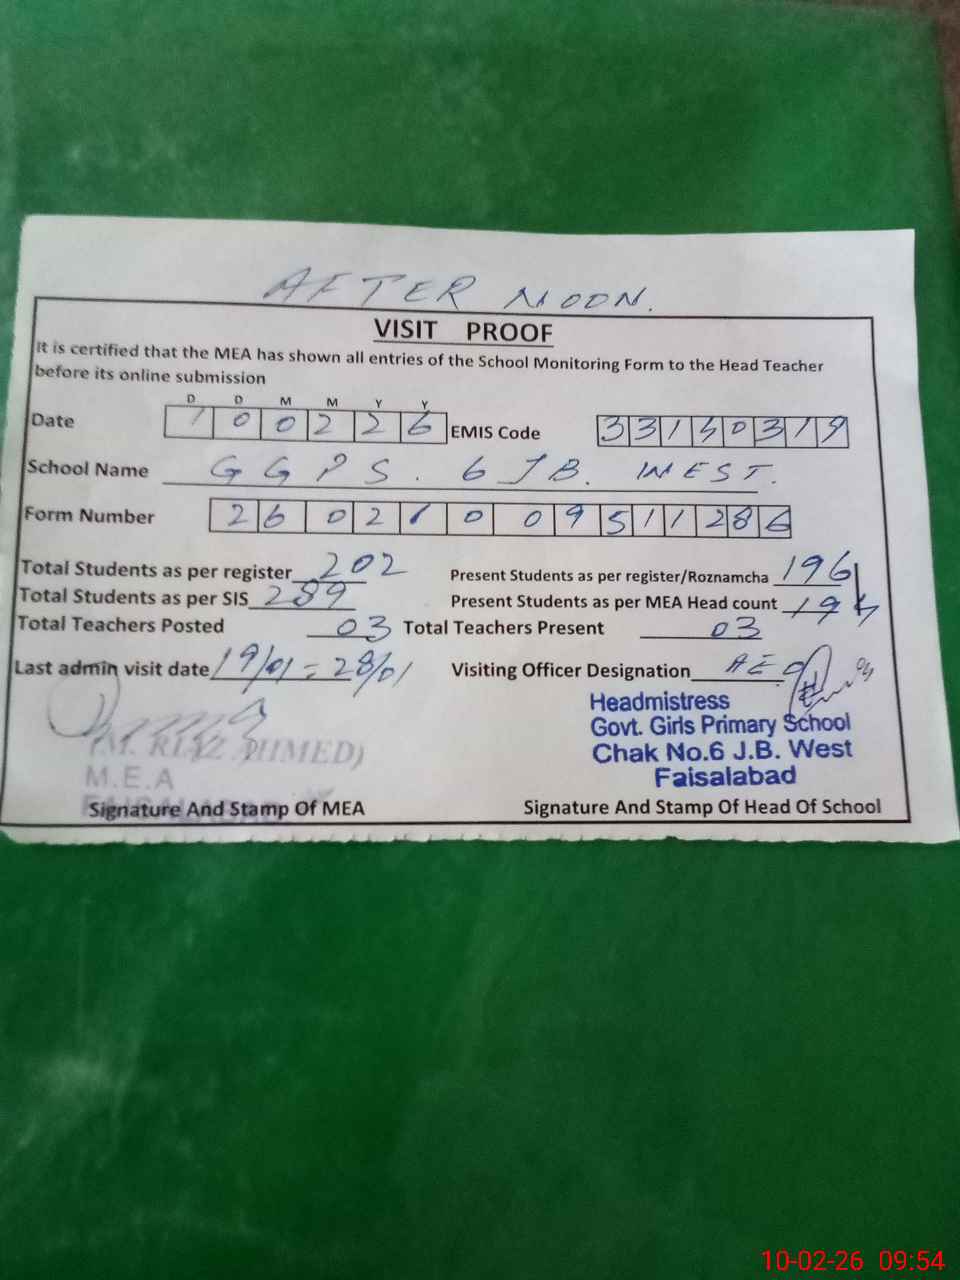 AFTER NOON.
VISIT PROOF
It is certified that the MEA has shown all entries of the School Monitoring Form to the Head Teacher
before its online submission
D D M M Y Y
Date 1 0 0 2 2 6 EMIS Code 3 3 1 5 0 3 1 9
School Name G G P S . 6 J B. WEST.
Form Number 2 6 0 2 1 0 0 9 5 1 1 2 8 6
Total Students as per register 202 Present Students as per register/Roznamcha 196
Total Students as per SIS 289 Present Students as per MEA Head count
Total Teachers Posted 03 Total Teachers Present 03
Last admin visit date 19/01 = 28/01 Visiting Officer Designation AEO
Headmistress
Govt. Girls Primary School
Chak No.6 J.B. West
Faisalabad
(M. RIAZ AHMED)
M.E.A
Signature And Stamp Of MEA Signature And Stamp Of Head Of School
10-02-26 09:54